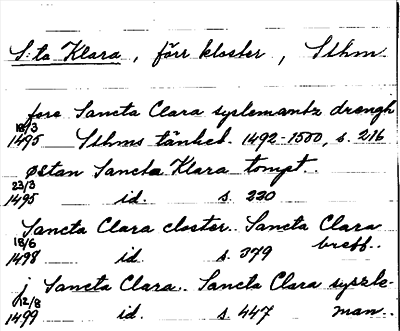 S:ta Klara, förr kloster, Sthm
fore Sancta Clara syslemantz drengh
18/3
1495 Sthms tänkeb. 1492-1500, s. 216
Østan Sancta Klara tompt..
23/3
1495 id. s. 220
Sancta Clara closter.. Sancta Clara
18/6 breff..
1498 id. s. 379
j Sancta Clara.. Sancta Clara syszle-
12/8
1499 id. s. 447 man..